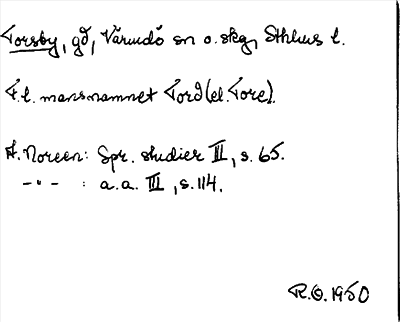 Torsby, gd, Värmdö sn o. skg, Sthlms l.
F.l. mansnamnet Tord (el. Tore).
A. Noreen: Spr. studier II, s. 65.
-"- : a.a. III, s. 114.
R.O. 1950